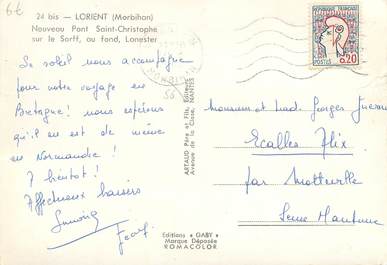 6€
24 bis — LORIENT (Morbihan)
Nouveau Pont Saint-Christophe
sur le Sorff, au fond, Lanester
Le soleil nous accompagne
pour notre voyage en
Bretagne! nous espérons
qu'il en est de même
en Normandie!
A bientôt!
Affectueux baisers
Simone
Jean
ARTAUD Père et Fils, Editeurs
Avenue de la Close, NANTES
Editions « GABY »
Marque Déposée
ROMACOLOR
MORBIHAN
REPUBLIQUE FRANÇAISE
POSTES 0,20
Monsieur et Mad. Georges
Ecalles Alix
par Motteville
Seine Maritime